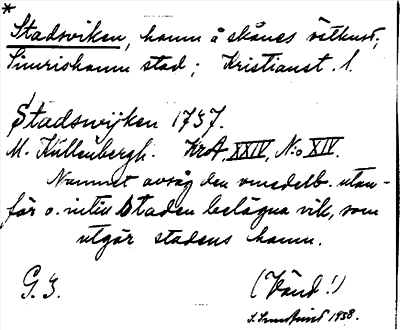 *
Stadsviken, hamn å skånes östkust;
Simrishamn stad; Kristianst. l.
Stadswijken 1737.
M. Küllenbergh. KrA, XXIV, N:o XIV.
Namnet avsåg den omedelb. utan-
för o. intill staden belägna vik, som
utgör stadens hamn.
G. I.
(Vänd!)
1938.